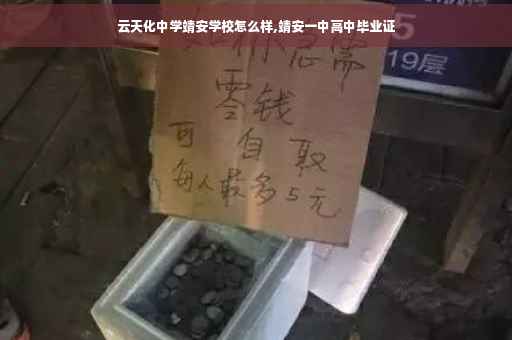 云天化中学靖安学校怎么样,靖安一中高中毕业证
如你急需
零钱
可自取
每人最多5元
5
19层